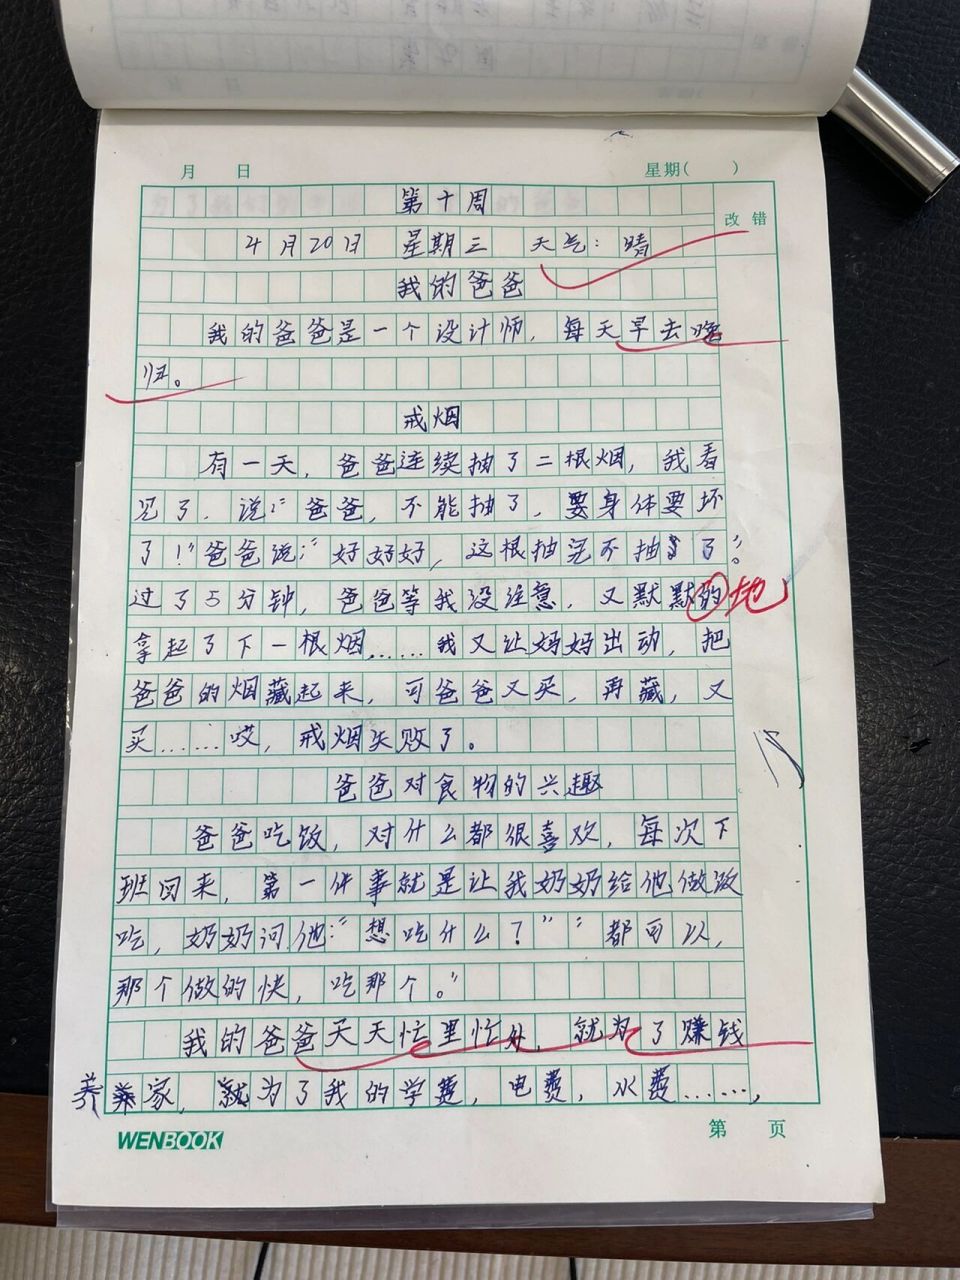 月 日 星期( )
第十周
改错
4月20日 星期三 天气：晴
我的爸爸
我的爸爸是一个设计师，每天早去晚
归。
戒烟
有一天，爸爸连续抽了二根烟，我看
见了，说：“爸爸，不能抽了，要身体要坏
了！”爸爸说：“好好好，这根抽完不抽了”。
过了5分钟，爸爸等我没注意，又默默的地
拿起了下一根烟……我又让妈妈出动，把
爸爸的烟藏起来，可爸爸又买，再藏，又
买……哎，戒烟失败了。
爸爸对食物的兴趣
爸爸吃饭，对什么都很喜欢，每次下
班回来，第一件事就是让我奶奶给他做饭
吃，奶奶问他：“想吃什么？”“都可以，
那个做的快，吃那个。”
我的爸爸天天忙里忙外，就为了赚钱
养家，就为了我的学费，电费，水费……，
WENBOOK
第 页